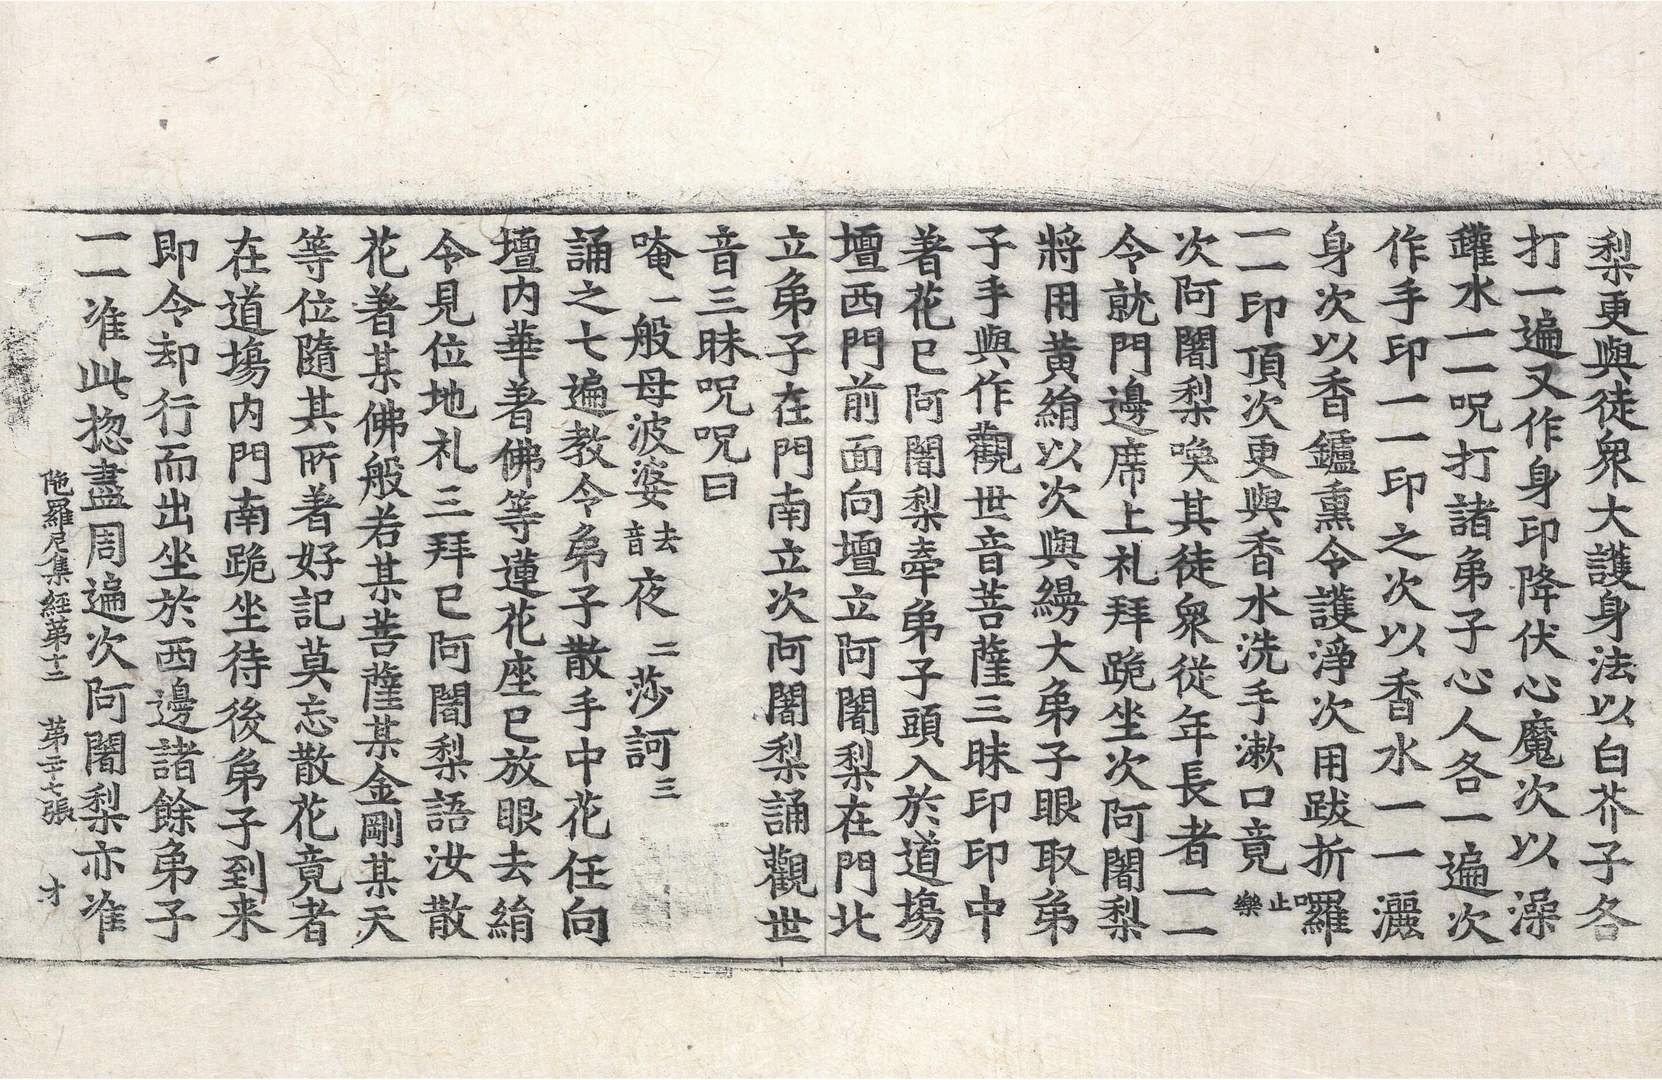 梨更與徒衆大護身法以白芥子各
打一遍又作身印降伏心魔次以澡
鑵水一一呪打諸弟子心人各一遍次
作手印一一印之次以香水一一灑
身次以香鑪熏令護淨次用跋折囉
一一印頂次更與香水洗手漱口竟止樂
次阿闍梨喚其徒衆從年長者一一
令就門邊席上礼拜跪坐次阿闍梨
將用黃絹以次與縵大弟子眼取弟
子手與作觀世音菩薩三昧印印中
著花已阿闍梨牽弟子頭入於道場
壇西門前面向壇立阿闍梨在門北
立弟子在門南立次阿闍梨誦觀世
音三昧呪呪曰
唵一般母波娑去音夜二莎訶三
誦之七遍教令弟子散手中花任向
壇内華著佛等蓮花座已放眼去絹
令見位地礼三拜已阿闍梨語汝散
花著某佛般若某菩薩某金剛某天
等位隨其所著好記莫忘散花竟者
在道場内門南跪坐待後弟子到来
即令却行而出坐於西邊諸餘弟子
一一准此揔盡周遍次阿闍梨亦准
陁羅尼集經第十二 第二十七張 才